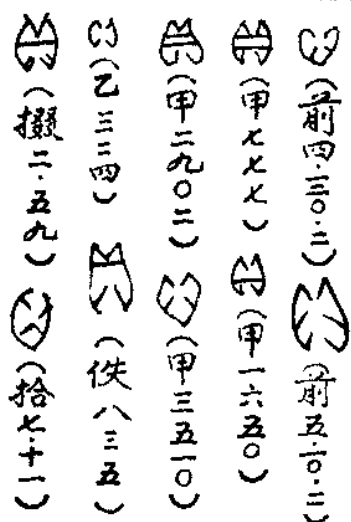 （前四·三〇·二）
（前五·一〇·二）
（甲七七七）
（甲一六五〇）
（甲二九〇二）
（甲三五一〇）
（乙三三四）
（佚八三五）
（掇二·五九）
（拾七·十一）